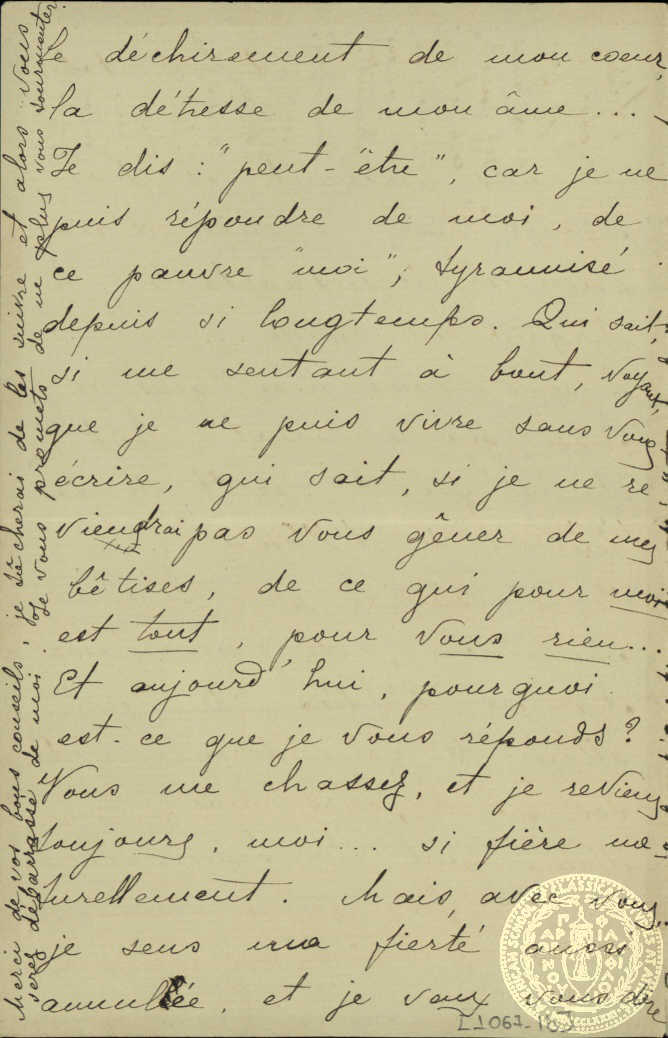 le déchirement de mon coeur,
la détresse de mon âme...
Je dis : "peut-être", car je ne
puis répondre de moi, de
ce pauvre "moi", tyrannisé
depuis si longtemps. Qui sait,
si me sentant à bout, voyant,
que je ne puis vivre sans vous
écrire, qui sait, si je ne re
viendrai pas vous gêner de mes
bêtises, de ce qui pour moi
est tout, pour vous rien...
Et aujourd'hui, pourquoi
est-ce que je vous réponds?
Vous me chassez, et je reviens
toujours, moi... si fière na-
turellement. Mais, avec vous,
je sens ma fierté
annulée, et je veux vous dire
Merci de vos bons conseils, je tâcherai de les suivre et alors vous
serez débarrassé de moi. Je vous promets de ne plus vous tourmenter.
[1067-18]